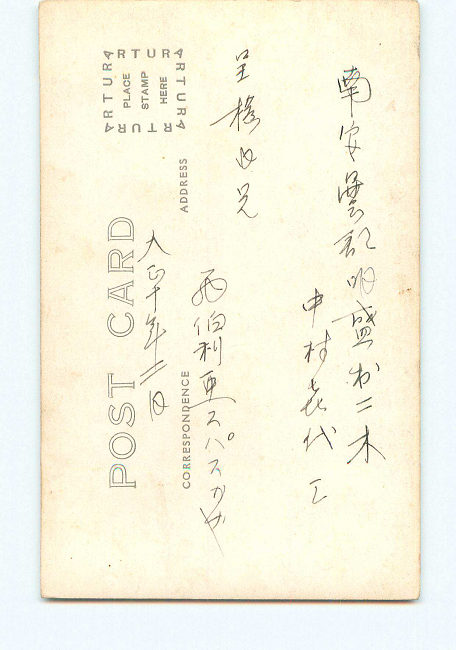 南安曇郡明盛村二木
中村喜代
呈 兄
西伯利亜スパスカヤ
大正十年二月
POST CARD
CORRESPONDENCE
ADDRESS
ARTURA
ARTURA
ARTURA
ARTURA
PLACE
STAMP
HERE